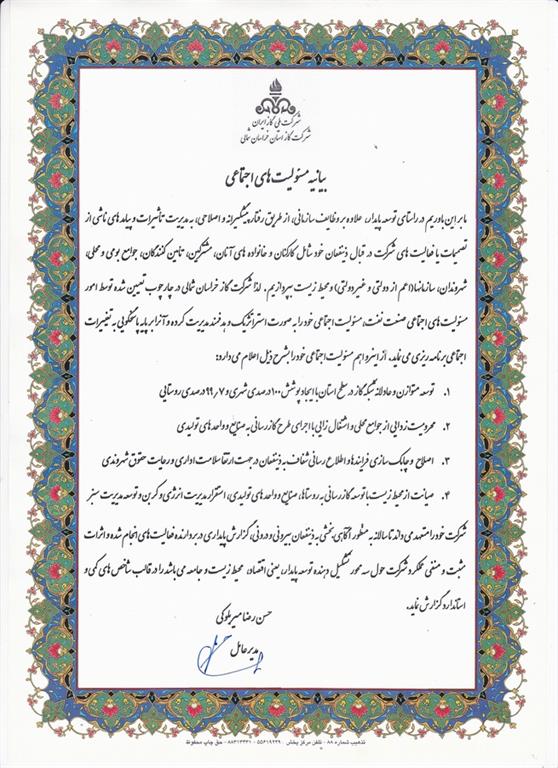 شرکت ملی گاز ایران
شرکت گاز استان خراسان شمالی
بیانیه مسئولیت های اجتماعی
ما بر این باوریم در راستای توسعه پایدار، علاوه بر وظایف سازمانی، از طریق رفتار پیشگیرانه و اصلاحی، به مدیریت تأثیرات و پیامدهای ناشی از
تصمیمات یا فعالیت های شرکت در قبال ذینفعان خود شامل کارکنان و خانواده های آنان، مشترکین، تامین کنندگان، جوامع بومی و محلی،
شهروندان، سازمانها (اعم از دولتی و غیر دولتی) و محیط زیست بپردازیم. لذا شرکت گاز خراسان شمالی در چارچوب تعیین شده توسط امور
مسئولیت های اجتماعی صنعت نفت، مسئولیت اجتماعی خود را به صورت استراتژیک و هدفمند مدیریت کرده و آنرا بر پایه پاسخگویی به تغییرات
اجتماعی برنامه ریزی می نماید. از اینرو اهم مسئولیت اجتماعی خود را بشرح ذیل اعلام می دارد:
۱. توسعه متوازن و عادلانه شبکه گاز در سطح استان با ایجاد پوشش ۱۰۰ درصدی شهری و ۹۹٫۷ درصدی روستایی
۲. محرومیت زدایی از جوامع محلی و اشتغال زایی با اجرای طرح گازرسانی به صنایع و واحدهای تولیدی
۳. اصلاح و چابک سازی فرایندها و اطلاع رسانی شفاف به ذینفعان در جهت ارتقا سلامت اداری و رعایت حقوق شهروندی
۴. صیانت از محیط زیست با توسعه گازرسانی به روستاها، صنایع و واحدهای تولیدی، استقرار مدیریت انرژی و کربن و توسعه مدیریت سبز
شرکت خود را متعهد می داند تا سالانه به منظور آگاهی بخشی به ذینفعان بیرونی و درونی، گزارش پایداری در بردارنده فعالیت های انجام شده و اثرات
مثبت و منفی عملکرد شرکت حول سه محور تشکیل دهنده توسعه پایدار، یعنی اقتصاد، محیط زیست و جامعه می باشد را در قالب شاخص های کمی و
استاندارد گزارش نماید.
حسن رضا میر ملوکی
مدیر عامل
تذهیب شماره ۸۸ - تلفن مرکز پخش : ۵۵۶۱۹۲۳۹ - ۸۸۳۱۳۳۳۱ - حق چاپ محفوظ